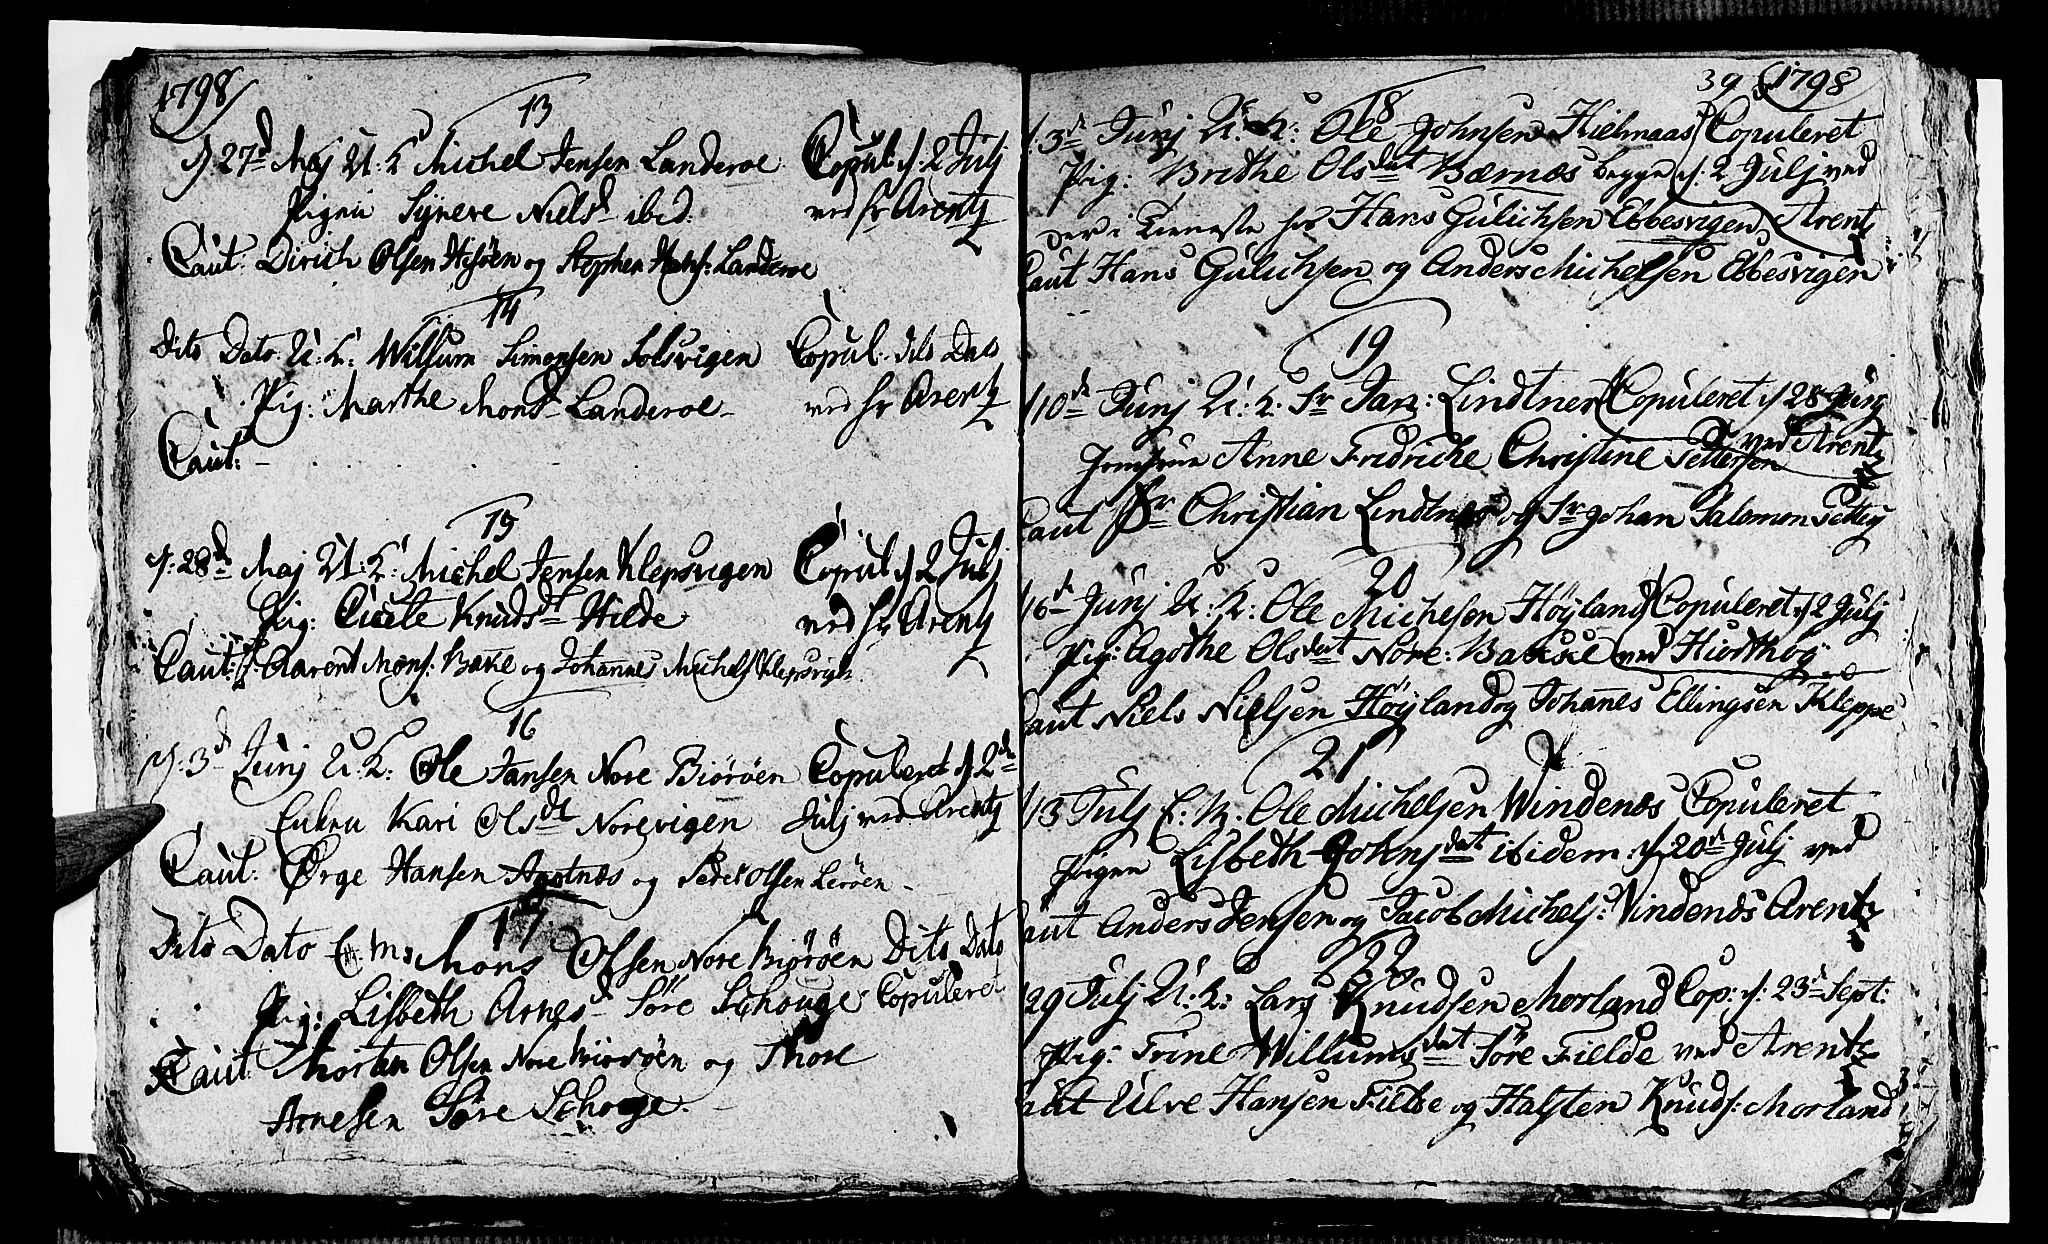 1798
13
d: 27d Maj U: K Michel Jensen Landeroe Copul d: 2 Julj
Pigen Synneve Nielsd ibid: ved hr Arentz
Caut: Dirich Olsen Hisöen og Stephen Hans: Landeroe
14
Dito Dato: U: K: Willum Simonsen Solsvigen Copul: dito Dato
Pig: Marthe Monsd Landeroe ved hr Arentz
Caut:
15
d: 28d Maj U: K: Michel Jensen Klepsvigen Copul d 2 Julj
Pig: Cicele Knudsdt Hilde ved hr Arentz
Caut: Aarent Mons: Bache og Johannes Michels Klepsvig
16
d: 3d Junj U: K: Ole Jansen Nore Biöröen Copuleret d 2de
Enken Kari Olsdt Norevigen Julj ved Arentz
Caut: Ørge Hansen Agotnæs og Peder Olsen Leröen
17
Dito Dato E: M: Mons Olsen Nore Biöröen Dito Dato
Pig: Lisbeth Arnesd Söre Schouge Copuleret
Caut: Mortan Olsen Nore Biöröen og Thore
Arnesen Söre Schouge.
39 1798
18
3d Junj U: K: Ole Johnsen Hielmaas Copuleret
Pig: Brithe Olsdat Bærnæs begge d: 2 Julj ved
der i Tieneste hos Hans Gulichsen Ebbesvigen Arentz
Caut Hans Gulichsen og Anders Michelsen Ebbesvigen
19
10de Junj U: K. Sr Jan: Lindtner Copuleret d 28 Junj
Jomfrue Anne Fridriche Christine Pettersen ved Arentz
Caut Sr Christian Lindtner og Sr Johan Salomon
20
16d Junj U: K: Ole Michelsen Höyland Copuleret d 2 Julj
Pig: Agothe Olsdat Nore: Bache ved Hiorthög
Caut Niels Nielsen Höyland og Johanes Ellingsen Kleppe
21
13 Julj E: K. Ole Michelsen Windenæs Copuleret
Pigen Lisbeth Johnsdat ibidem: d 20d Julj ved
Caut Anders Jensen og Jacob Michels: Vindenæs Arentz
22
29 Julj U: K: Lars Knudsen Morland Cop: d: 23d Sept:
Pig: Trine Willumsdat Söre Fielde ved Arentz
Caut Ulve Hansen Fielde og Halsten Knuds: Morland